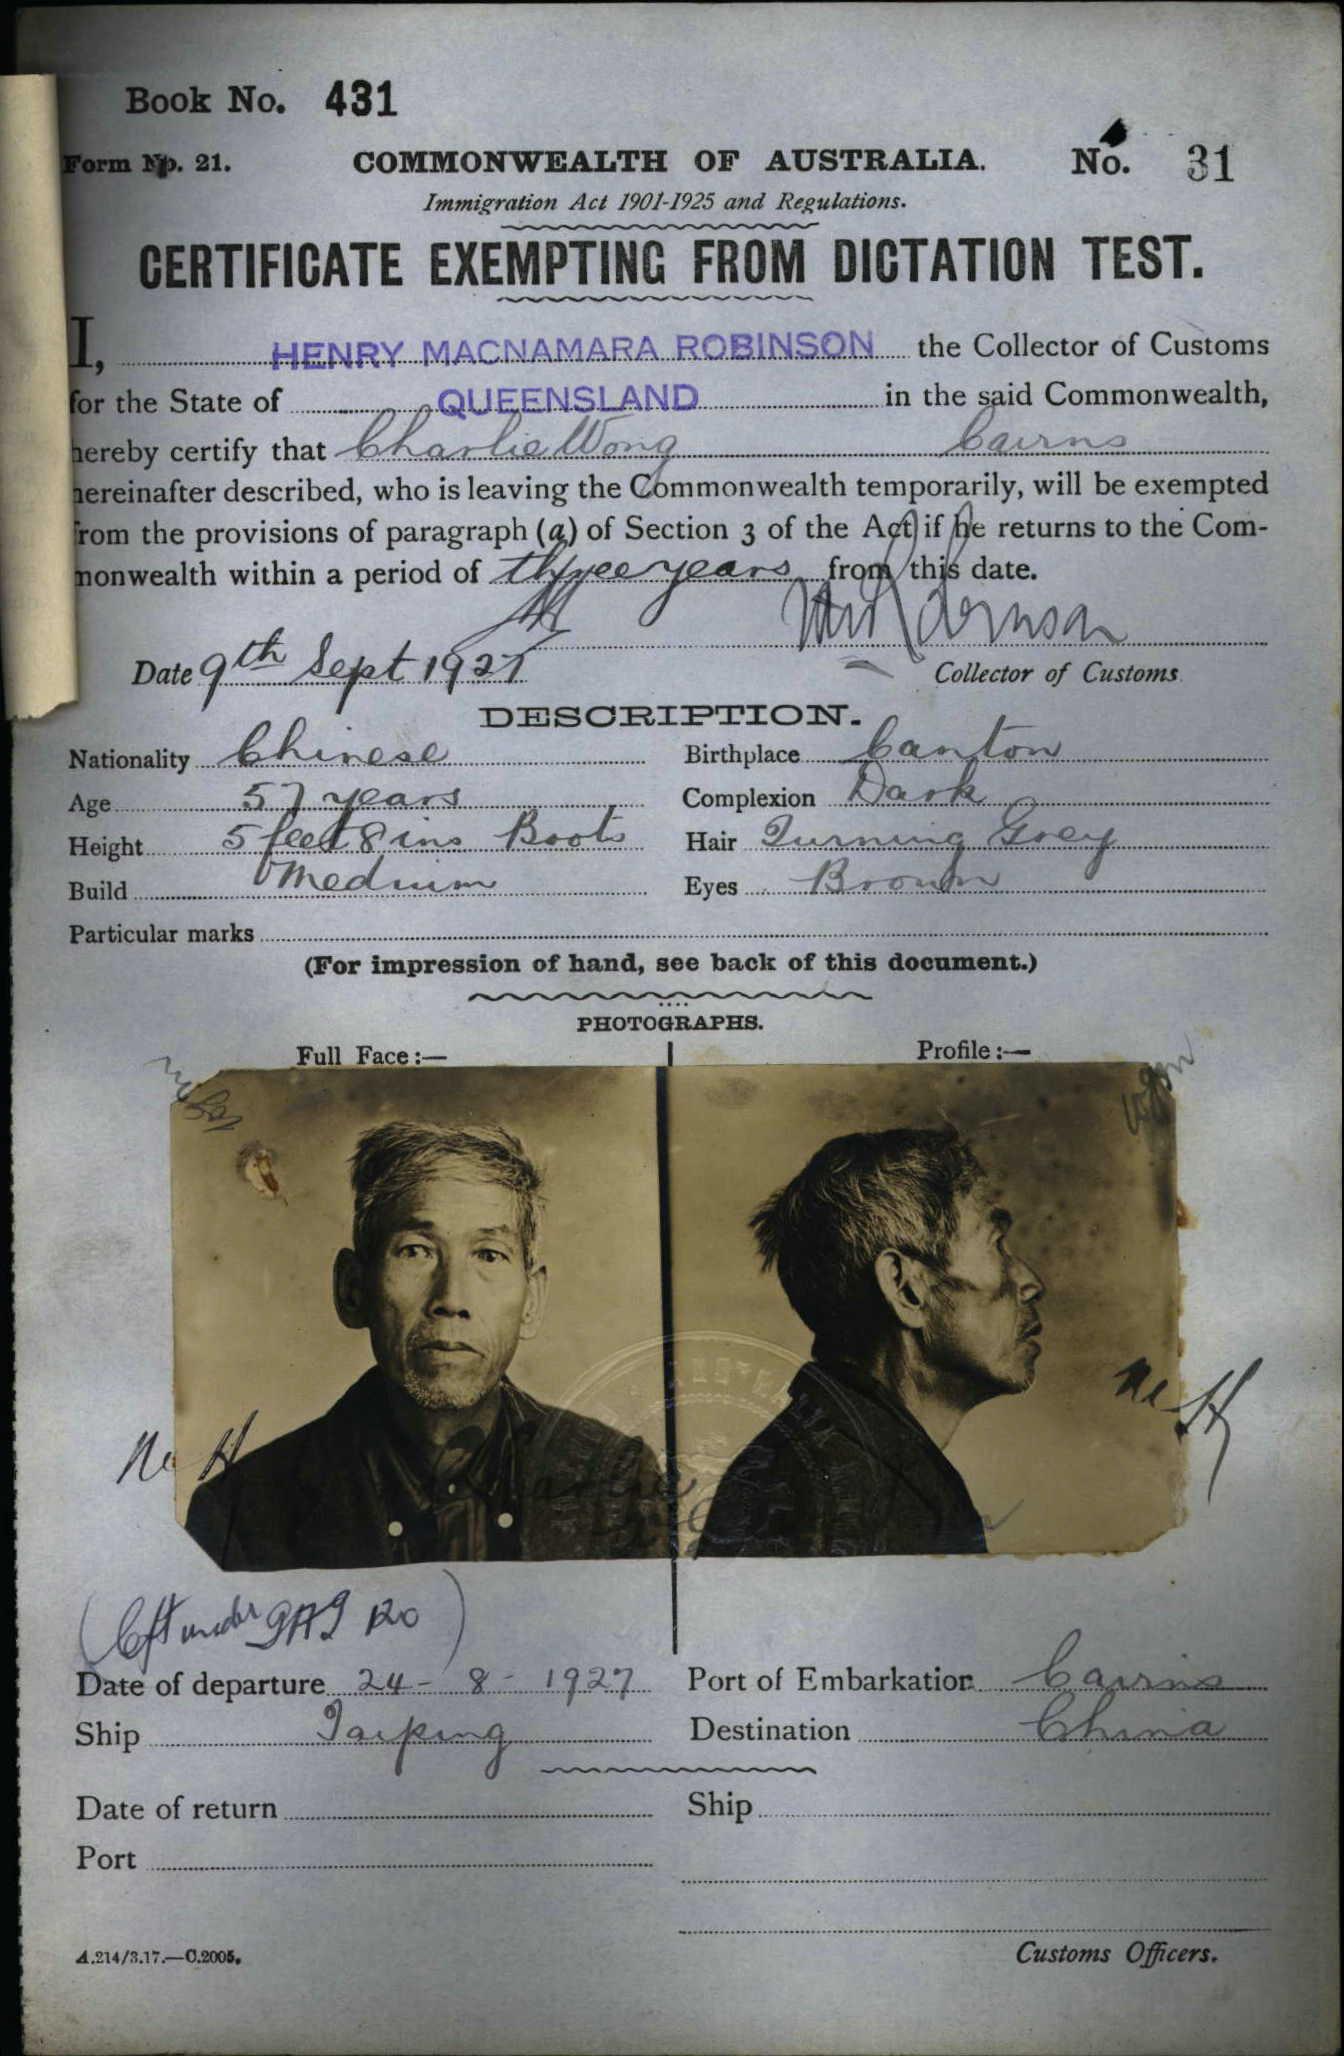 Book No. 431
Form No. 21. COMMONWEALTH OF AUSTRALIA. No. 31
Immigration Act 1901-1925 and Regulations.
CERTIFICATE EXEMPTING FROM DICTATION TEST.
I, HENRY MACNAMARA ROBINSON the Collector of Customs
for the State of QUEENSLAND in the said Commonwealth,
hereby certify that Charlie Wong Cairns
hereinafter described, who is leaving the Commonwealth temporarily, will be exempted
from the provisions of paragraph (a) of Section 3 of the Act if he returns to the Com-
monwealth within a period of three years from this date.
Date 9th Sept 1927 Collector of Customs
DESCRIPTION.
Nationality Chinese Birthplace Canton
Age 57 years Complexion Dark
Height 5 feet 8 ins Boots Hair Turning Grey
Build Medium Eyes Brown
Particular marks
(For impression of hand, see back of this document.)
PHOTOGRAPHS.
Full Face:— Profile:—
(Left under
Date of departure 24 - 8 - 1927 Port of Embarkation Cairns
Ship Taiping Destination China
Date of return Ship
Port
A.214/3.17.—C.2005. Customs Officers.